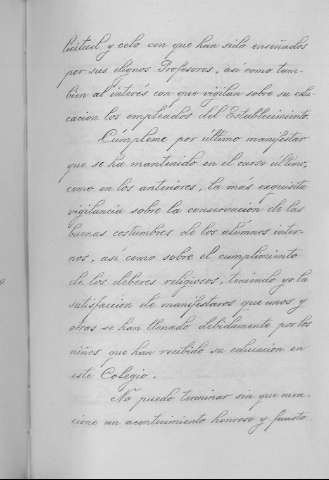 licitud y celo con que han sido enseñados
por sus dignos Profesores, así como tam-
bien al interés con que vigilan sobre su edu-
cacion los empleados del Establecimiento.
Cúmpleme por último manifestar
que se ha mantenido en el curso último,
como en los anteriores, la mas exquisita
vigilancia sobre la conservacion de las
buenas costumbres de los alumnos inter-
nos, así como sobre el cumplimiento
de los deberes religiosos, teniendo yo la
satisfaccion de manifestaros que unos y
otros se han llenado debidamente por los
niños que han recibido su educacion en
este Colegio.
No puedo terminar sin que men-
cione un acontecimiento honroso y fausto